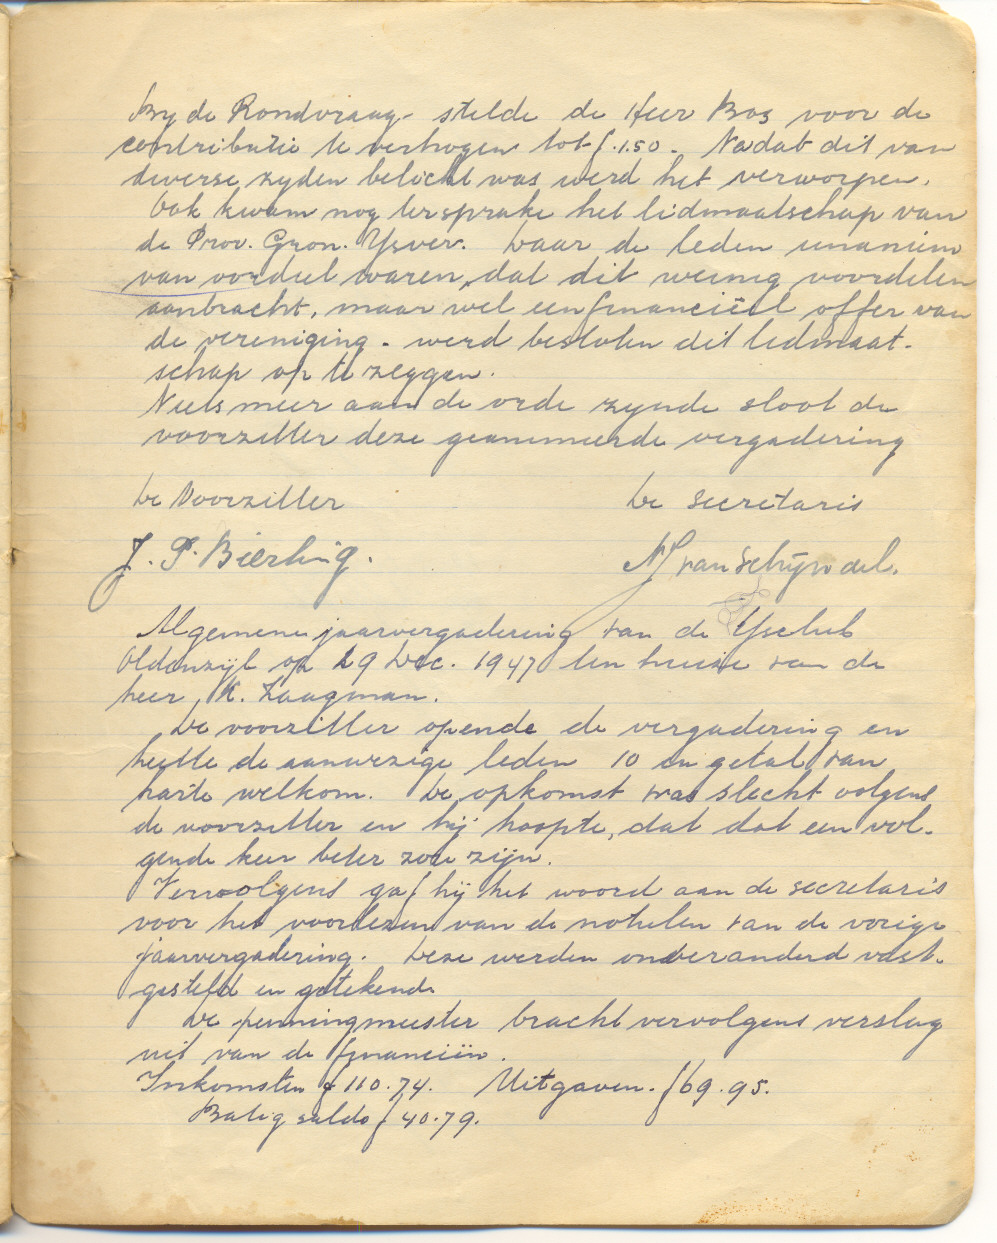 By de Rondvraag - stelde de Heer Bos voor de
contributie te verhogen tot f.1.50. Nadat dit van
diverse zyden belicht was werd het verworpen.
Ook kwam nog ter sprake het lidmaatschap van
de Prov. Gron. Ysver. Daar de leden unaniem
van oordeel waren, dat dit weinig voordelen
aanbracht, maar wel een financiëel offer van
de vereniging - werd besloten dit lidmaat-
schap op te zeggen.
Niets meer aan de orde zynde sloot de
voorzitter deze geanimeerde vergadering
De Voorzitter De Secretaris
J. P. Bierling. van Schijndel.
Algemene jaarvergadering van de Ysclub
Oldenzijl op 29 Dec. 1947 ten huize van de
heer K. Zaagman.
De voorzitter opende de vergadering en
heette de aanwezige leden 10 in getal van
harte welkom. De opkomst was slecht volgens
de voorzitter en hij hoopte, dat dat een vol-
gende keer beter zou zijn.
Vervolgens gaf hij het woord aan de secretaris
voor het voorlezen van de notulen van de vorige
jaarvergadering. Deze werden onveranderd vast-
gesteld en getekend.
De penningmeester bracht vervolgens verslag
uit van de financiën.
Inkomsten f 110.74. Uitgaven. f 69.95.
Batig saldo f 40.79.